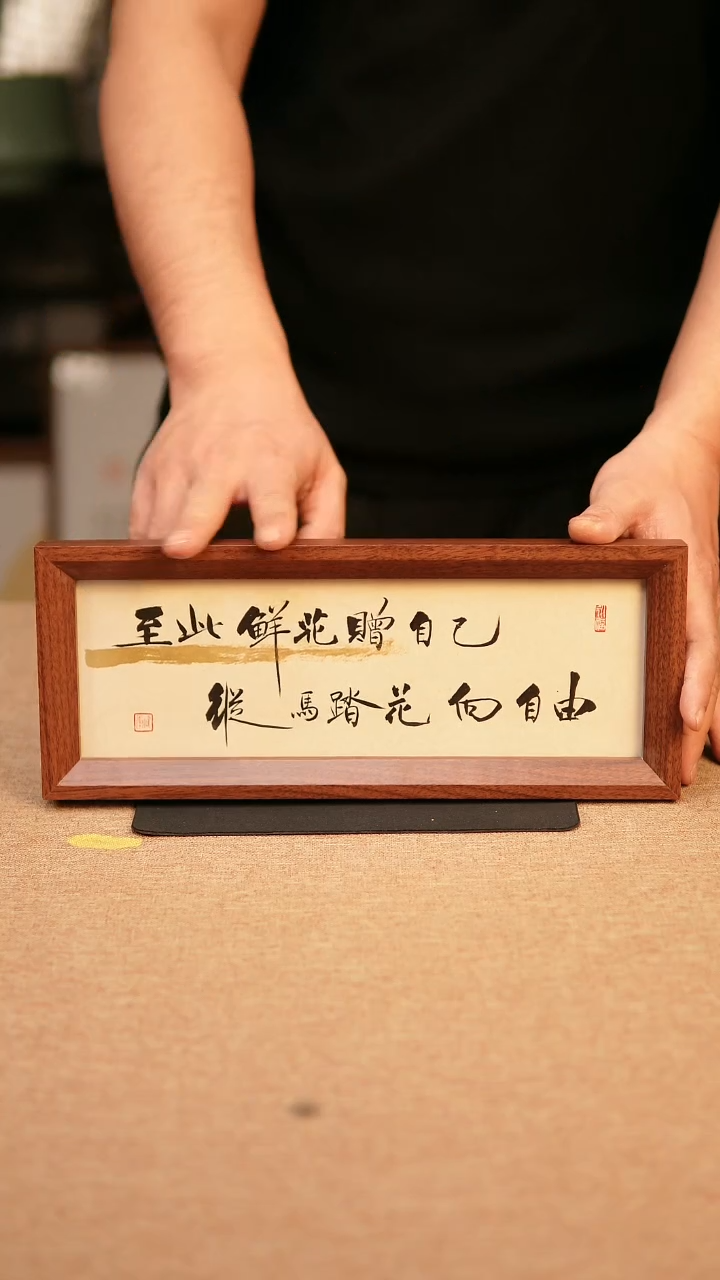 至此鲜花贈自己
縱馬踏花向自由